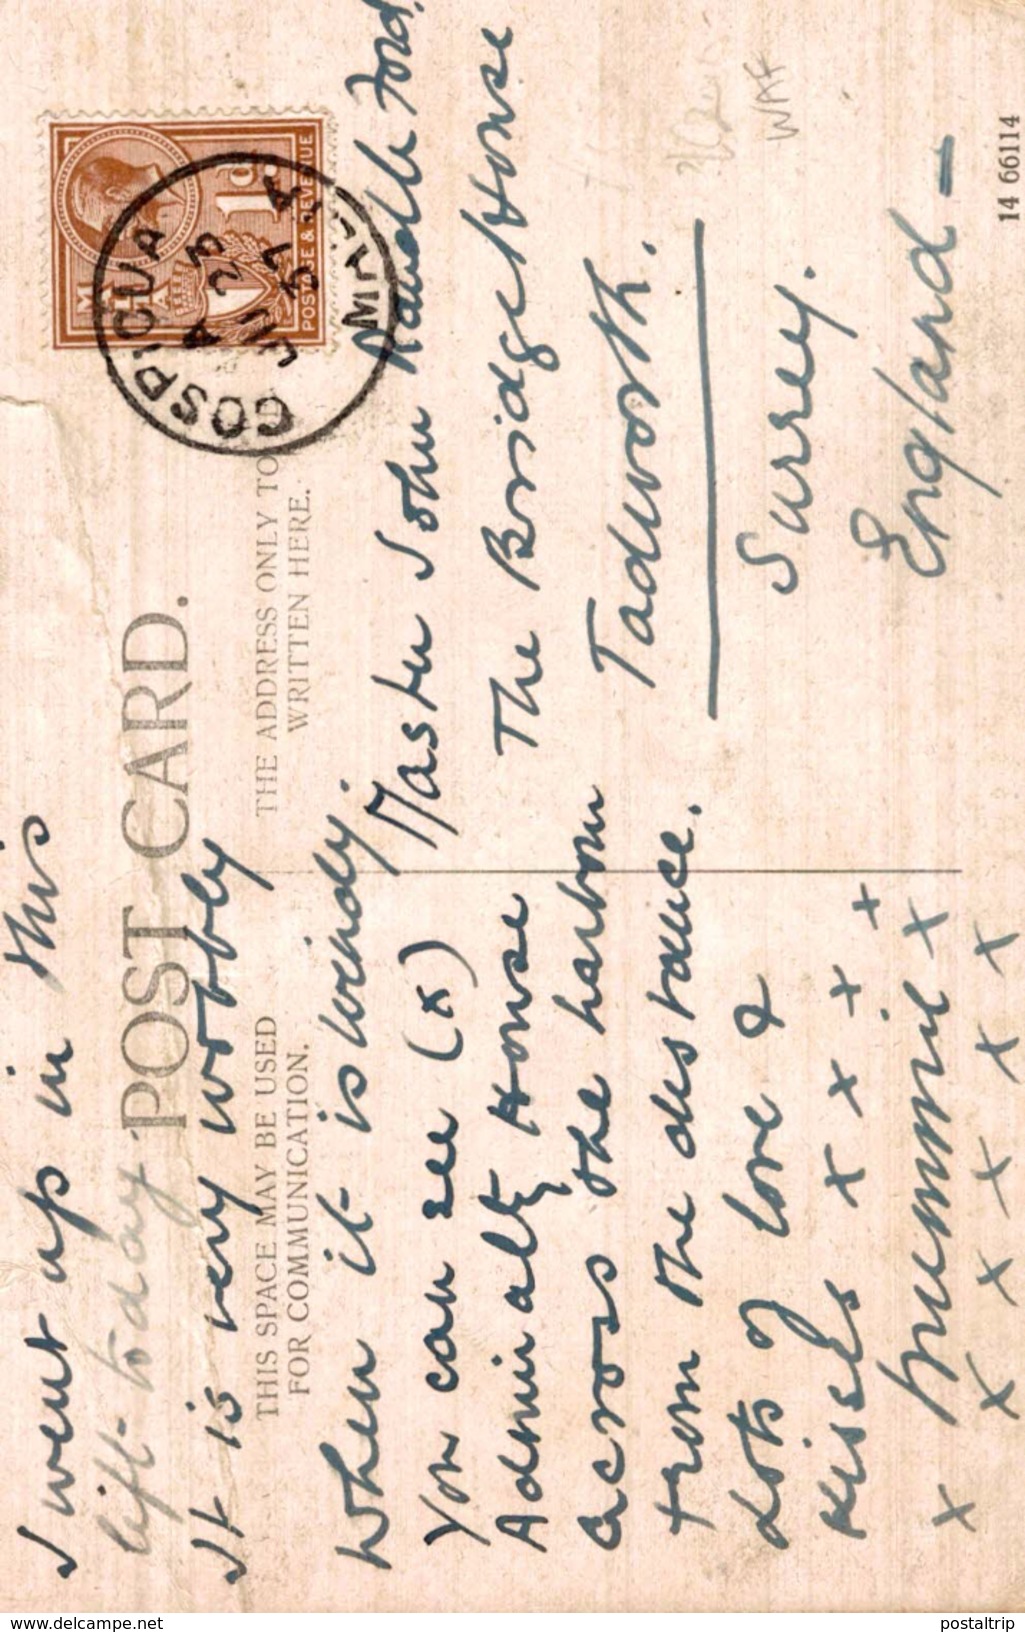 I went up in this
lift to day
It is very wobbly
when it is windy.
You can see (x)
Admiralty House
across the harbour
from the distance.
Lots of love &
kisses x x x x
mummie x
x x x x x x
POST CARD.
THIS SPACE MAY BE USED
FOR COMMUNICATION.
THE ADDRESS ONLY TO
WRITTEN HERE.
MALTA
1D
POSTAGE & REVENUE
COSPICUA
A
23
JU
37
MALTA
Master John Randle Ford.
The Bridge House
Tadworth.
Surrey.
England -
WAF
14 66114
www.delcampe.net
postaltrip